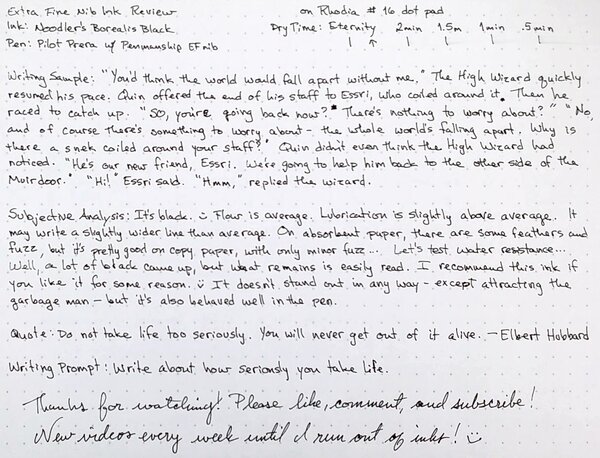 Extra Fine Nib Ink Review on Rhodia #16 dot pad
Ink: Noodler's Borealis Black Dry Time: Eternity 2min 1.5m 1min .5min
Pen: Pilot Prera w/ Penmanship EF nib
Writing Sample: "You'd think the world would fall apart without me." The High Wizard quickly
resumed his pace. Quin offered the end of his staff to Essri, who coiled around it. Then he
raced to catch up. "So, you're going back now? There's nothing to worry about?" "No,
and of course there's something to worry about - the whole world's falling apart. Why is
there a snek coiled around your staff?" Quin didn't even think the High Wizard had
noticed. "He's our new friend, Essri. We're going to help him back to the other side of the
Muirdoor." "Hi!" Essri said. "Hmm," replied the wizard.
Subjective Analysis: It's black. :) Flow is average. Lubrication is slightly above average. It
may write a slightly wider line than average. On absorbent paper, there are some feathers and
fuzz, but it's pretty good on copy paper, with only minor fuzz... Let's test water resistance...
Well, a lot of black came up, but what remains is easily read. I recommend this ink if
you like it for some reason. :) It doesn't stand out in any way - except attracting the
garbage man - but it's also behaved well in the pen.
Quote: Do not take life too seriously. You will never get out of it alive. - Elbert Hubbard
Writing Prompt: Write about how seriously you take life.
Thanks for watching! Please like, comment, and subscribe!
New videos every week until I run out of inks! :)